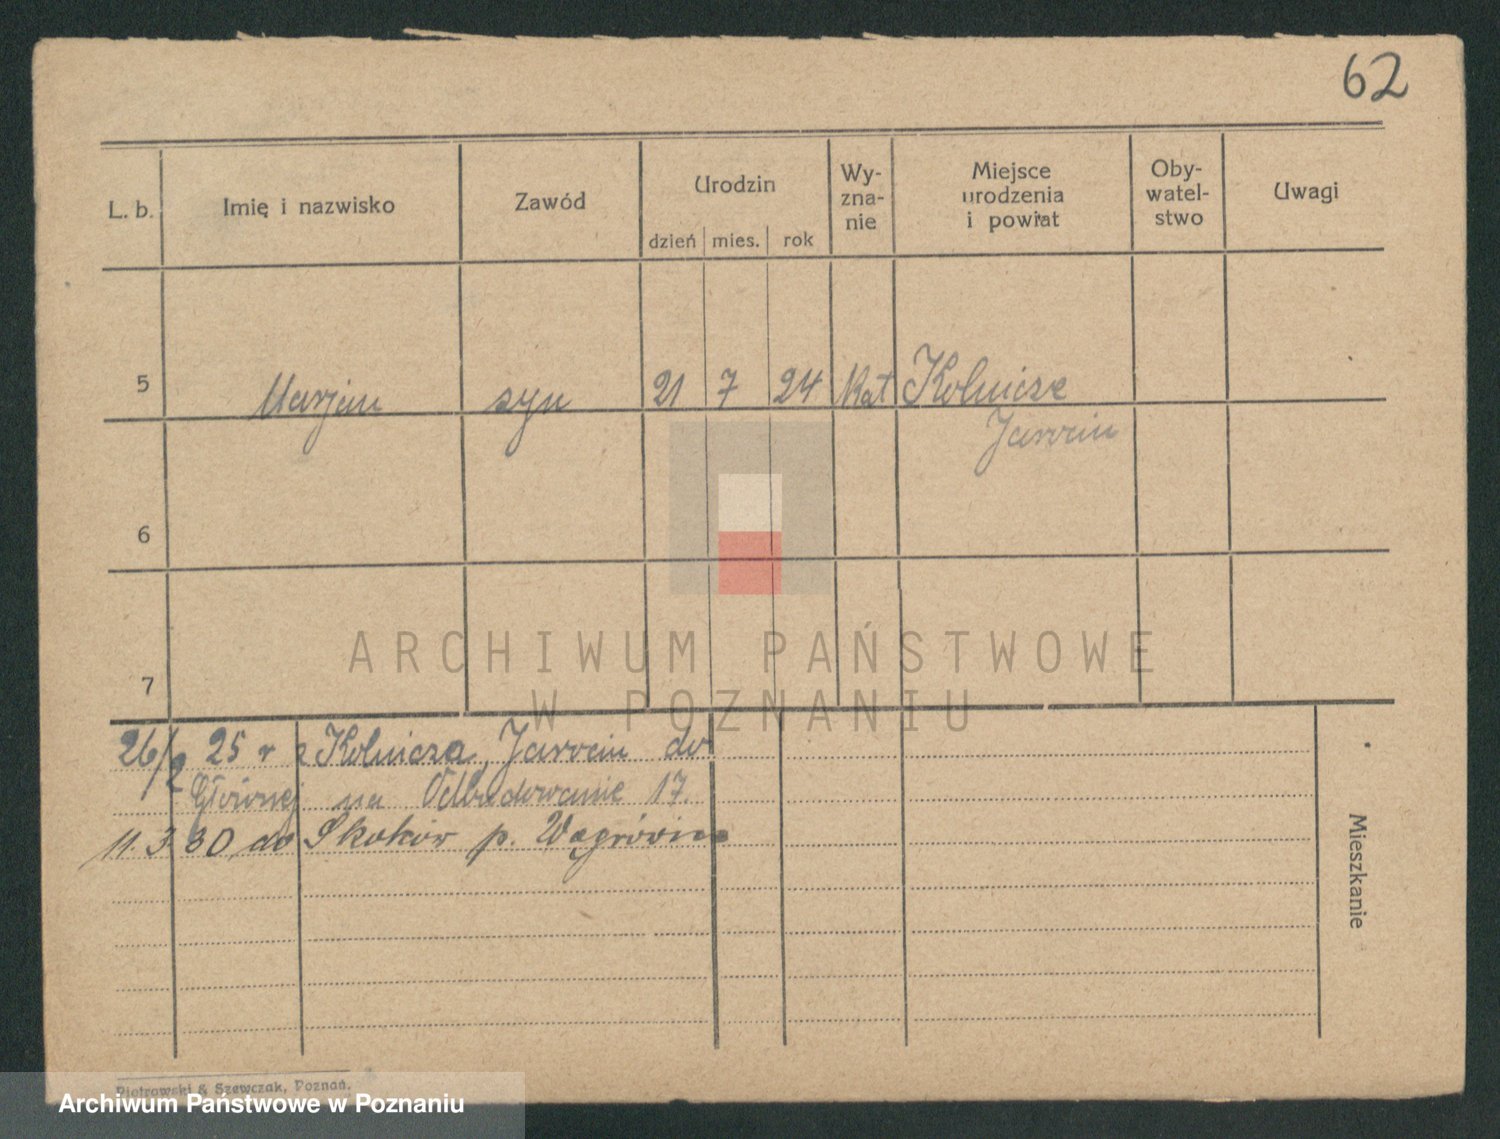 62
L. b. Imię i nazwisko Zawód Urodzin Wy-zna-nie Miejsce urodzenia i powiat Oby-watel-stwo Uwagi
dzień mies. rok
5 Marjan syn 21 7 24 kat Kolnicze
Jarocin
6
7
26/2 25 r z Kolnicza, Jarocin do
Głównej na Odbudowanie 17.
11. 3. 30 do Skoków p. Wągrówiec
Mieszkanie
Piotrowski & Szewczak, Poznań.
ARCHIWUM PAŃSTWOWE
W POZNANIU
Archiwum Państwowe w Poznaniu